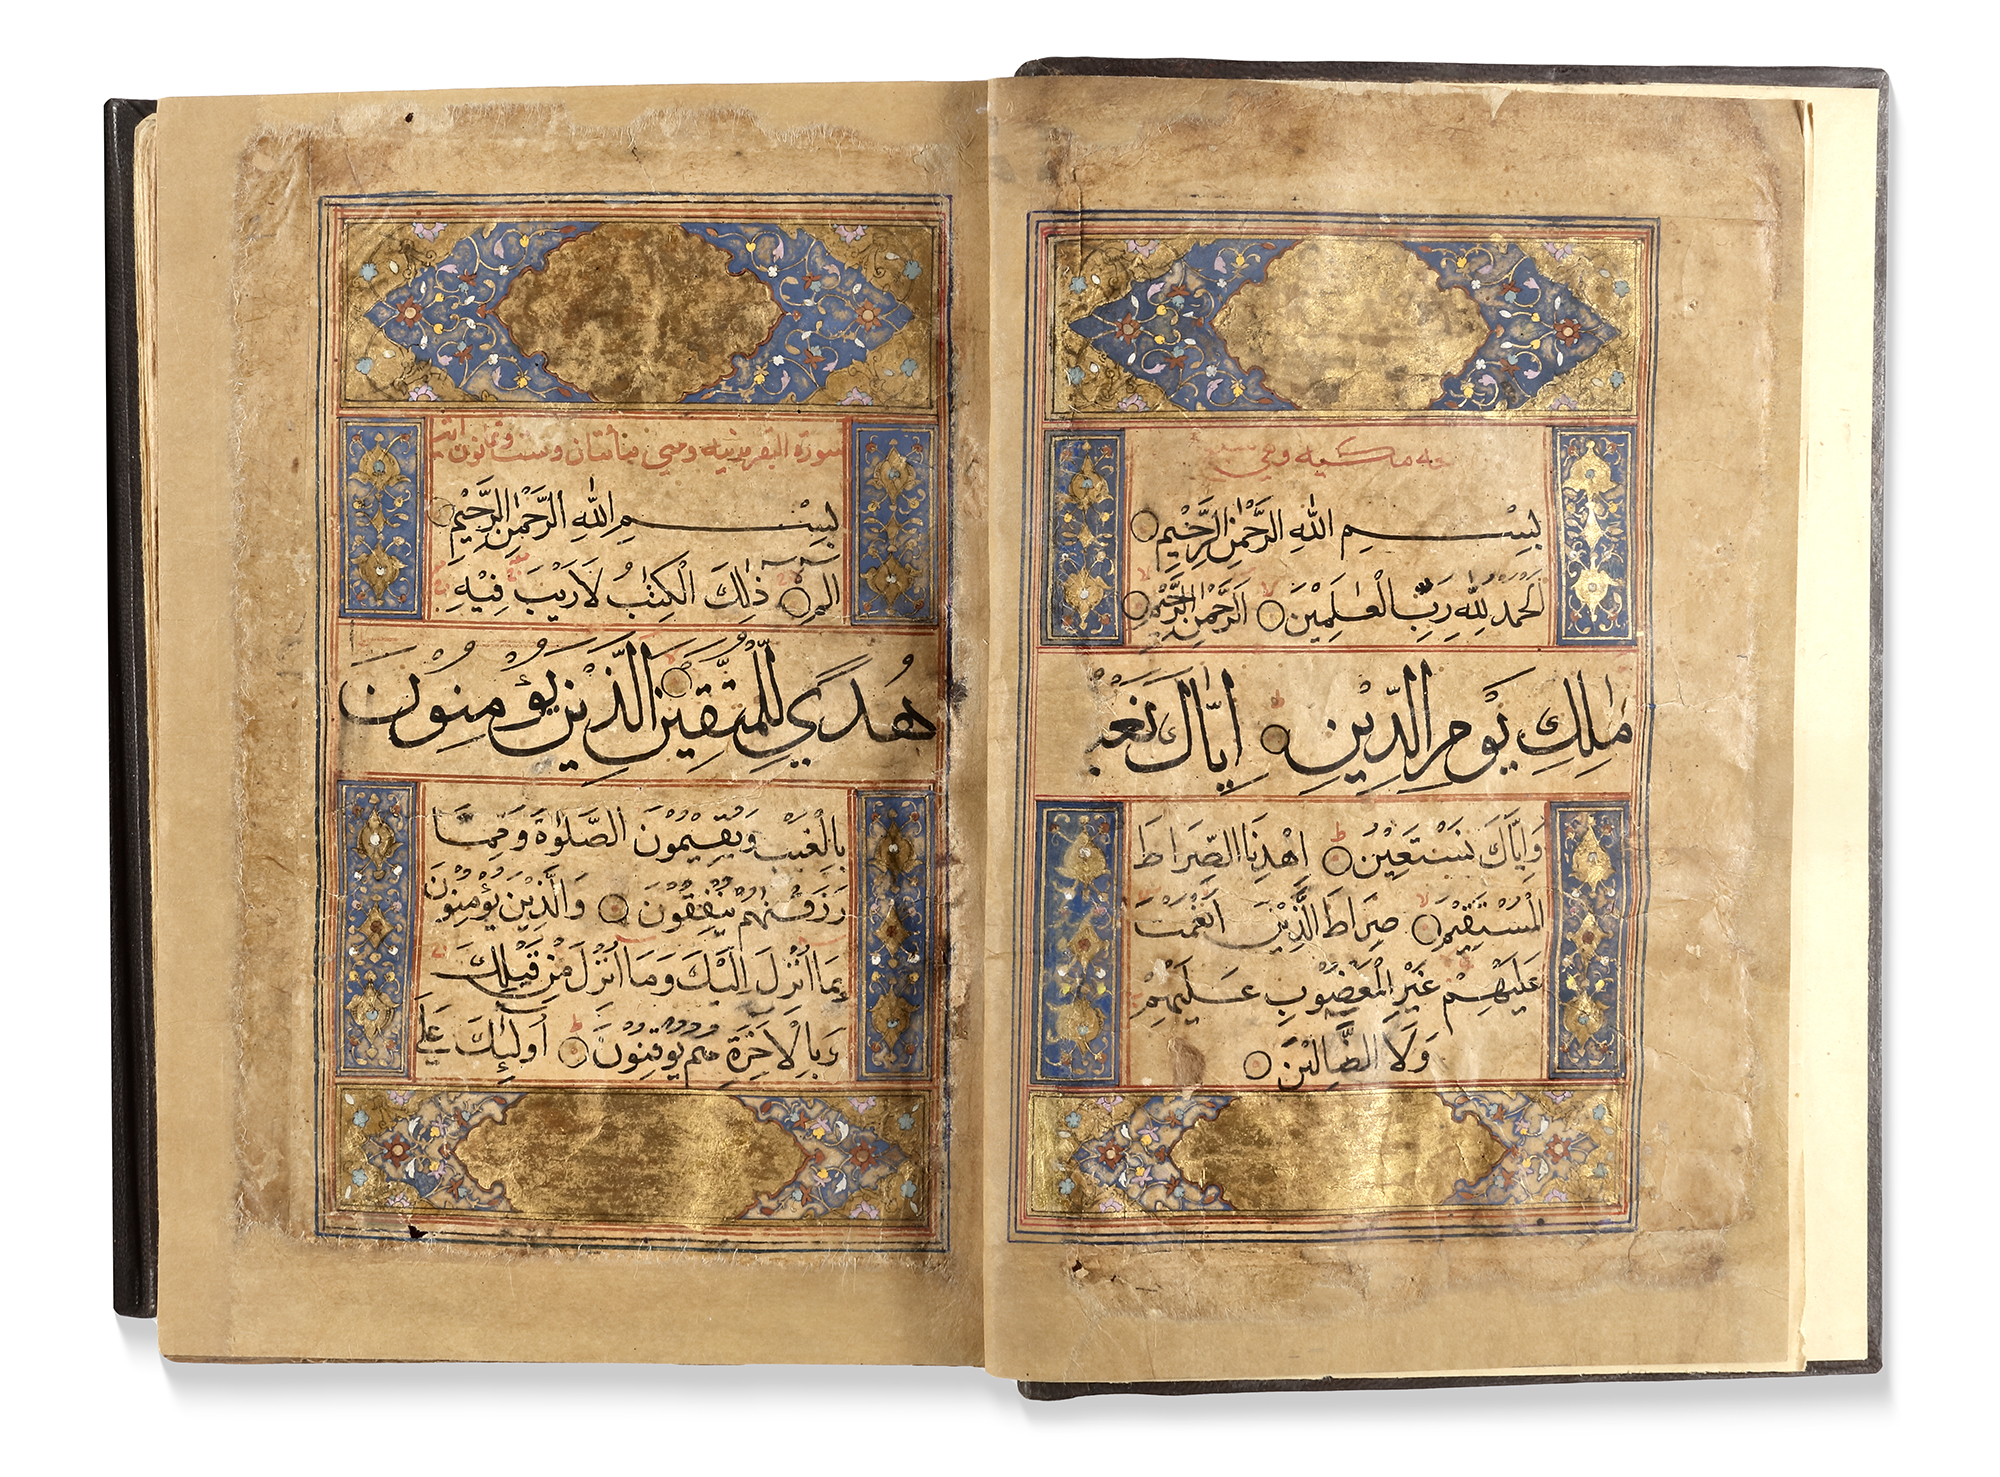 مكية وهي
بِسْمِ اللهِ الرَّحْمٰنِ الرَّحِيْمِ
اَلْحَمْدُ لِلّٰهِ رَبِّ الْعٰلَمِيْنَ اَلرَّحْمٰنِ الرَّحِيْمِ
مٰلِكِ يَوْمِ الدِّيْنِ اِيَّاكَ نَعْبُ
وَاِيَّاكَ نَسْتَعِيْنُ اِهْدِنَا الصِّرَاطَ
الْمُسْتَقِيْمَ صِرَاطَ الَّذِيْنَ اَنْعَمْتَ
عَلَيْهِمْ غَيْرِ الْمَغْضُوْبِ عَلَيْهِمْ
وَلَا الضَّالِّيْنَ
سورة البقر مدنيه وهي مأئتان وست وثمانون اية
بِسْمِ اللهِ الرَّحْمٰنِ الرَّحِيْمِ
الم ذٰلِكَ الْكِتٰبُ لَا رَيْبَ فِيْهِ
هُدًي لِلْمُتَّقِيْنَ الَّذِيْنَ يُؤْمِنُوْنَ
بِالْغَيْبِ وَيُقِيْمُوْنَ الصَّلٰوةَ وَمِمَّا
رَزَقْنٰهُمْ يُنْفِقُوْنَ وَالَّذِيْنَ يُؤْمِنُوْنَ
بِمَا اُنْزِلَ اِلَيْكَ وَمَا اُنْزِلَ مِنْ قَبْلِكَ
وَبِالْاٰخِرَةِ هُمْ يُوْقِنُوْنَ اُولٰئِكَ عَلٰي